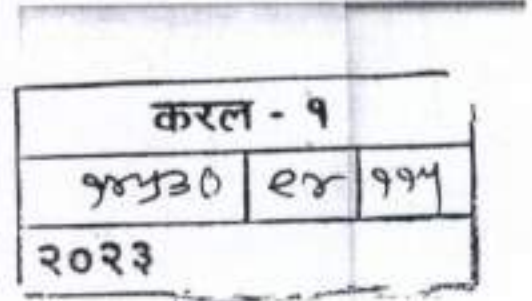 करल - १
१४५३० ९४ ११५
२०२३